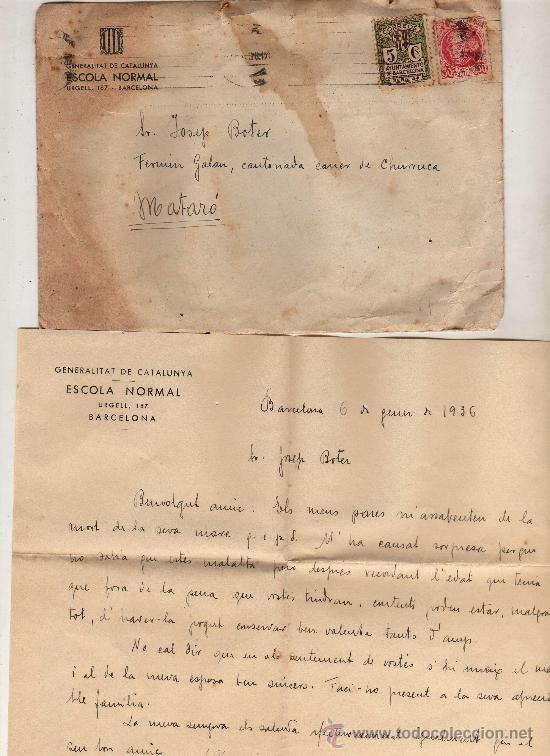 GENERALITAT DE CATALUNYA
ESCOLA NORMAL
URGELL, 187 - BARCELONA
5 C
AYUNTAMIENTO
BARCELONA
Sr. Josep Boter
Fermin Galan, cantonada carrer de Churruca
Mataró
GENERALITAT DE CATALUNYA
ESCOLA NORMAL
URGELL, 187
BARCELONA
Barcelona 6 de gener de 1936
Sr. Josep Boter
Benvolgut amic: Els meus pares m'assabenten de la
mort de la seva mare q. e. p. d. M'ha causat sorpresa perquè
no sabia que estes malalta però després recordant l'edat que tenia
que fora de la pena que vostès tindran, contents poden estar, malgrat
tot, d'haver-la pogut conservar ben valenta tants d'anys.
No cal dir que en el sentiment de vostès s'hi uneix el meu
i el de la meva esposa ben sincers. Faci-ho present a la seva aprecia
ble familia.
La meva sempre els saluda i el
seu bon amic
todocoleccion.net